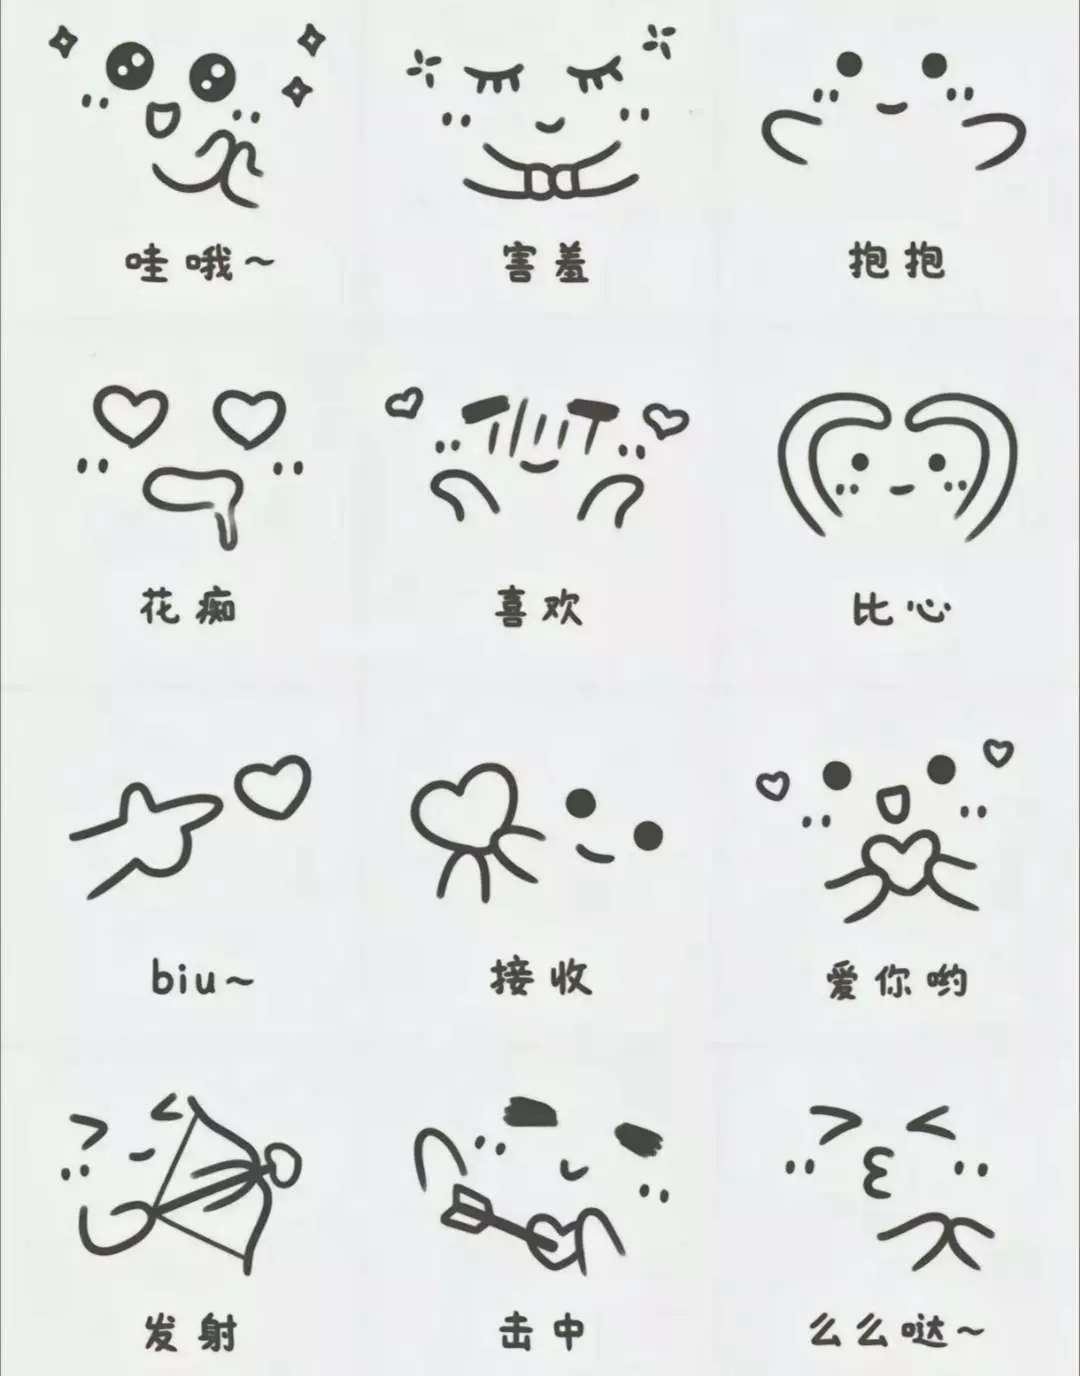 哇哦~
害羞
抱抱
花痴
喜欢
比心
biu~
接收
爱你哟
发射
击中
么么哒~